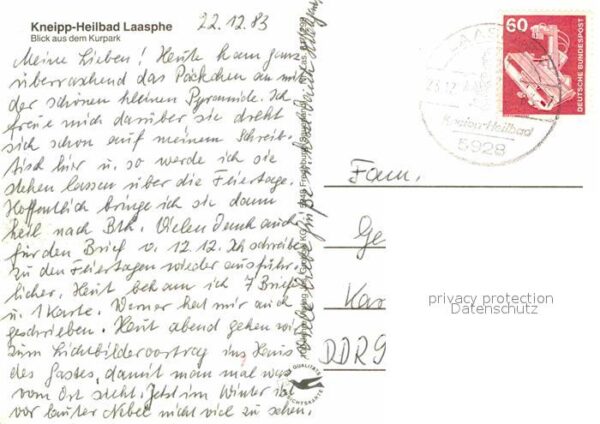 Kneipp-Heilbad Laasphe
Blick aus dem Kurpark
22.12.83
Meine Lieben! Heute kam ganz
überraschend das Päckchen an mit
der schönen kleinen Pyramide. Ich
freue mich darüber sie dreht
sich schon auf meinem Schreib-
tisch hier u. so werde ich sie
stehen lassen über die Feiertage.
Hoffentlich bringe ich sie dann
heil nach Bth. Vielen Dank auch
für den Brief v. 12.12. Ich schreibe
zu den Feiertagen wieder ausführ-
licher. Heut bekam ich 7 Briefe
u. 1 Karte. Werner hat mir auch
geschrieben. Heut abend gehen wir
zum Lichtbildervortrag ins Haus
des Gastes, damit man mal was
vom Ort sieht. Jetzt im Winter ist
vor lauter Nebel nicht viel zu sehen.
Viele liebe Grüße
QUALITÄTS
60
DEUTSCHE BUNDESPOST
LAASPHE
Kneipp-Heilbad
5928
Fam.
Ge
Kar
DDR 9
privacy protection
Datenschutz